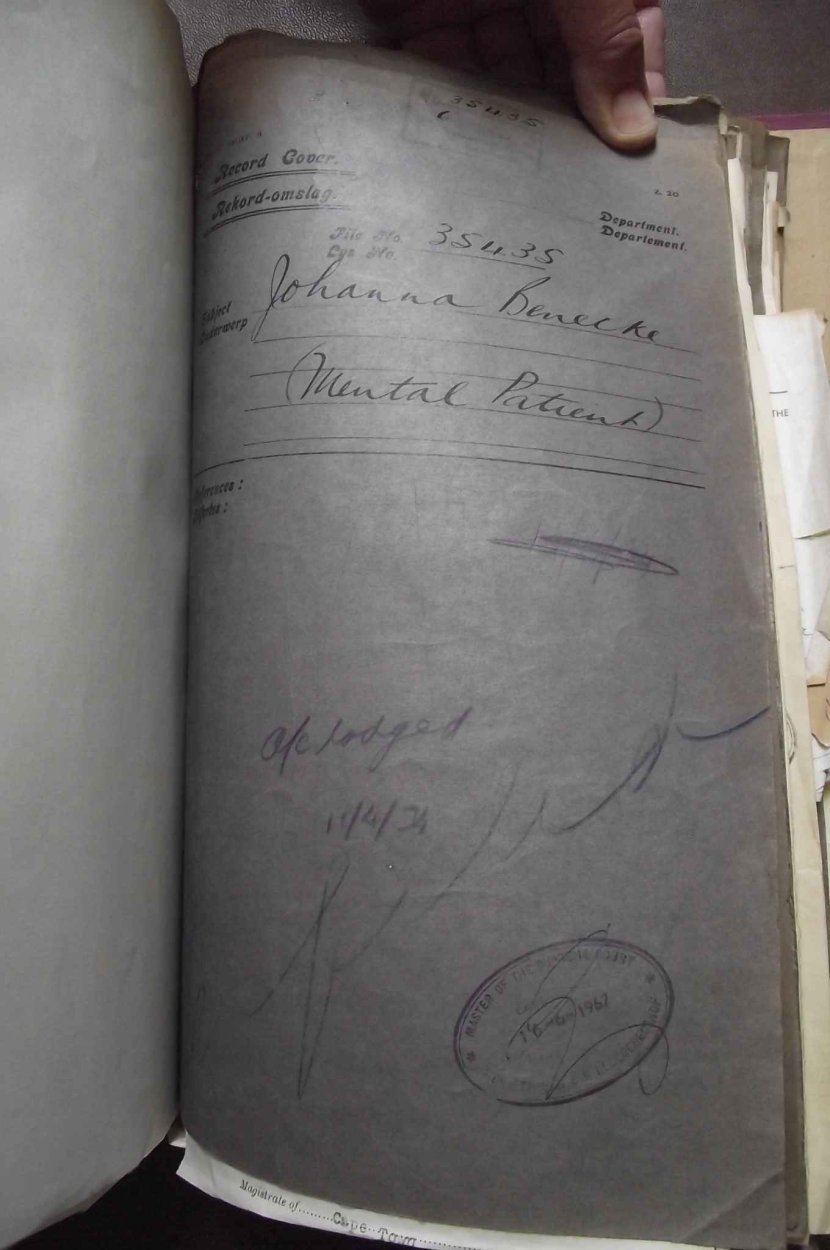 35435
Record Cover.
Rekord-omslag.
Z. 20
Department.
Departement.
File No.
35435
Subject
Onderwerp
Johanna Benecke
(Mental Patient)
References :
a/c lodged
11/4/34
MASTER OF THE SUPREME COURT
16-6-1967
THE
Magistrate of Cape Town